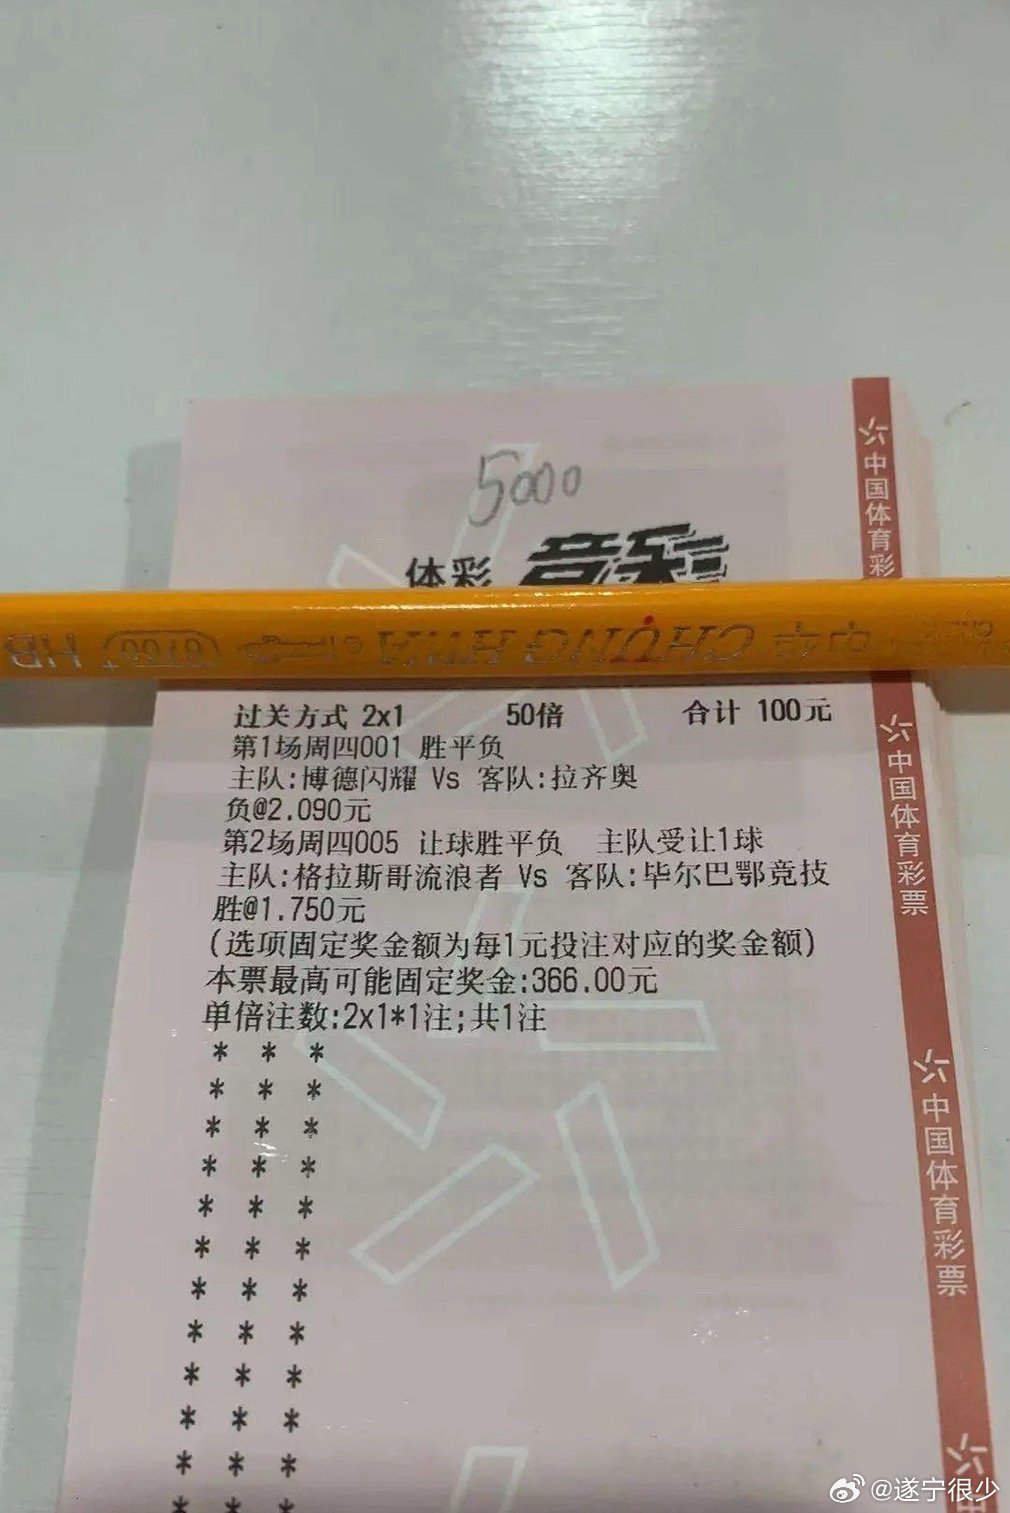 5000
体彩 竞彩
中华 CHUNG HWA 6700 HB
过关方式 2x1 50倍 合计 100元
第1场周四001 胜平负
主队:博德闪耀 Vs 客队:拉齐奥
负@2.090元
第2场周四005 让球胜平负 主队受让1球
主队:格拉斯哥流浪者 Vs 客队:毕尔巴鄂竞技
胜@1.750元
(选项固定奖金额为每1元投注对应的奖金额)
本票最高可能固定奖金:366.00元
单倍注数:2x1*1注;共1注
* * *
* * *
* * *
* * *
* * *
* * *
* * *
* * *
* * *
* * *
* * *
* * *
中国体育彩
中国体育彩票
中国体育彩票
中
@遂宁很少